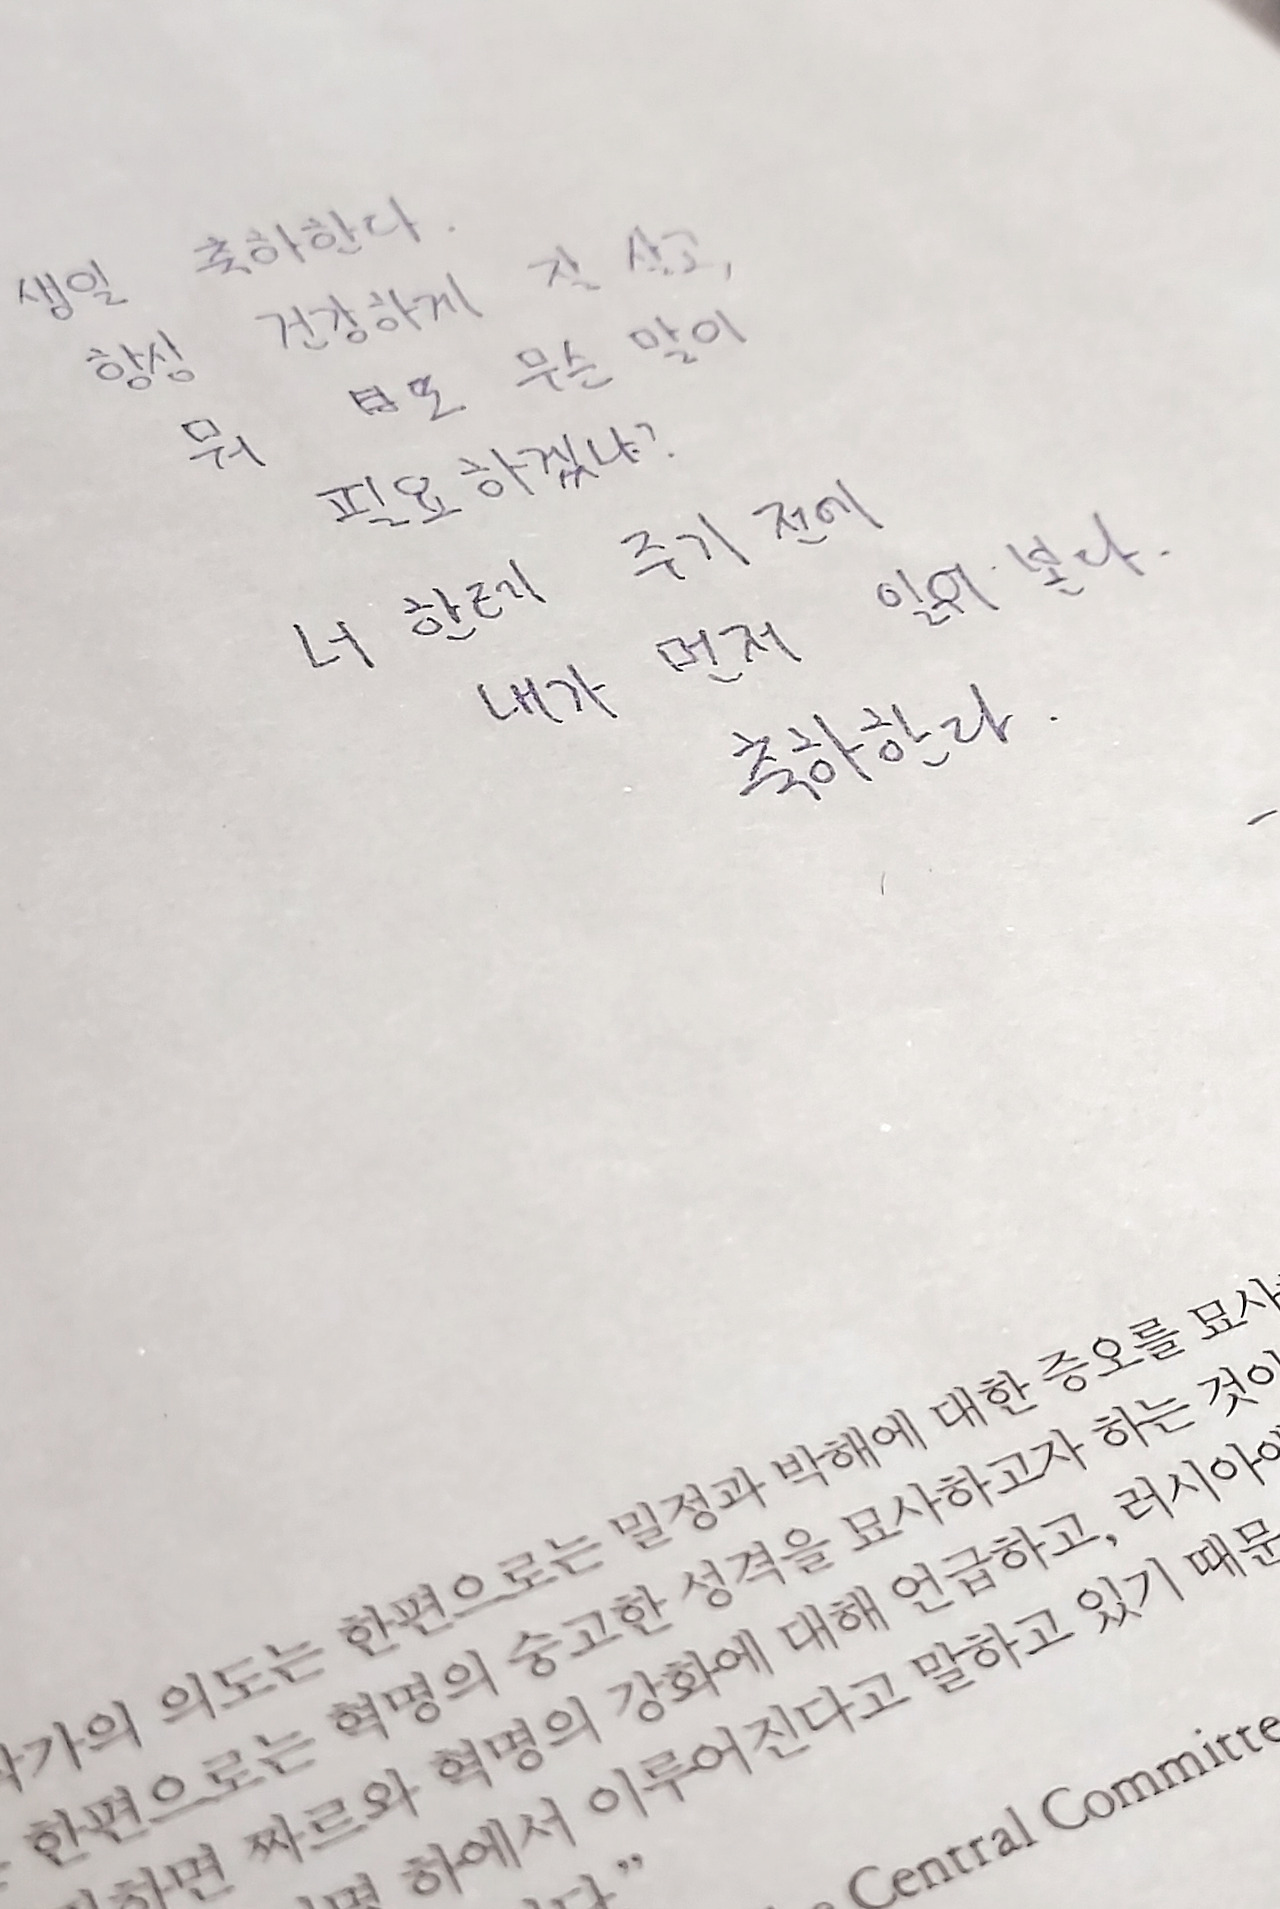 생일 축하한다.
항상 건강하게 잘 살고,
뭐 무슨 말이
필요하겠냐?
너 한테 주기 전에
내가 먼저 본다.
축하한다.
작가의 의도는 한편으로는 밀정과 박해에 대한 증오를 묘사
한편으로는 혁명의 숭고한 성격을 묘사하고자 하는 것이
하면 짜르와 혁명의 강화에 대해 언급하고, 러시아에
하에서 이루어진다고 말하고 있기 때문
다.”
Central Committe